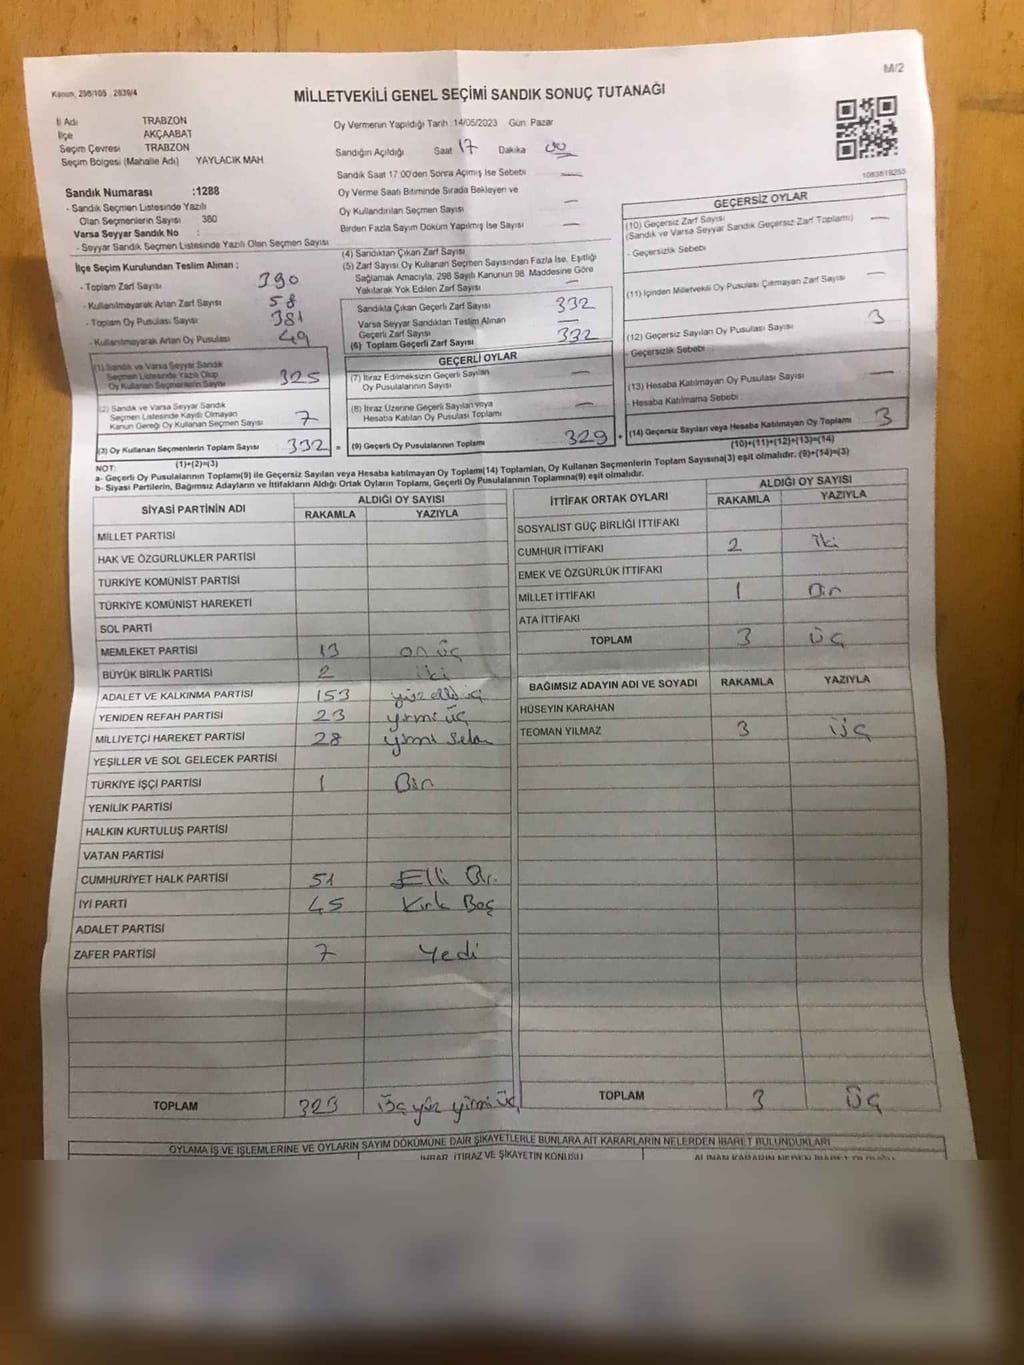 Kanun, 298/105 , 2839/4
M/2
MİLLETVEKİLİ GENEL SEÇİMİ SANDIK SONUÇ TUTANAĞI
İl Adı TRABZON
İlçe AKÇAABAT
Seçim Çevresi TRABZON
Seçim Bölgesi (Mahalle Adı) YAYLACIK MAH
Sandık Numarası :1288
- Sandık Seçmen Listesinde Yazılı
Olan Seçmenlerin Sayısı 380
Varsa Seyyar Sandık No :
- Seyyar Sandık Seçmen Listesinde Yazılı Olan Seçmen Sayısı
İlçe Seçim Kurulundan Teslim Alınan :
- Toplam Zarf Sayısı 390
- Kullanılmayarak Artan Zarf Sayısı 58
- Toplam Oy Pusulası Sayısı 381
- Kullanılmayarak Artan Oy Pusulası 49
(1) Sandık ve Varsa Seyyar Sandık
Seçmen Listesinde Yazılı Olup
Oy Kullanan Seçmenlerin Sayısı 325
(2) Sandık ve Varsa Seyyar Sandık
Seçmen Listesinde Kaydı Olmayan
Kanun Gereği Oy Kullanan Seçmen Sayısı 7
(3) Oy Kullanan Seçmenlerin Toplam Sayısı 332 =
(1)+(2)=(3)
Oy Vermenin Yapıldığı Tarih :14/05/2023 Gün: Pazar
Sandığın Açıldığı Saat 17 Dakika 00
Sandık Saat 17:00'den Sonra Açılmış İse Sebebi —
Oy Verme Saati Bitiminde Sırada Bekleyen ve
Oy Kullandırılan Seçmen Sayısı —
Birden Fazla Sayım Döküm Yapılmış İse Sayısı —
(4) Sandıktan Çıkan Zarf Sayısı
(5) Zarf Sayısı Oy Kullanan Seçmen Sayısından Fazla İse, Eşitliği
Sağlamak Amacıyla, 298 Sayılı Kanunun 98. Maddesine Göre
Yakılarak Yok Edilen Zarf Sayısı —
Sandıkta Çıkan Geçerli Zarf Sayısı 332
Varsa Seyyar Sandıktan Teslim Alınan
Geçerli Zarf Sayısı —
(6) Toplam Geçerli Zarf Sayısı 332
GEÇERLİ OYLAR
(7) İtiraz Edilmeksizin Geçerli Sayılan
Oy Pusulalarının Sayısı —
(8) İtiraz Üzerine Geçerli Sayılan veya
Hesaba Katılan Oy Pusulası Toplamı —
(9) Geçerli Oy Pusulalarının Toplamı 329 +
1083819253
GEÇERSİZ OYLAR
(10) Geçersiz Zarf Sayısı
(Sandık ve Varsa Seyyar Sandık Geçersiz Zarf Toplamı) —
- Geçersizlik Sebebi
(11) İçinden Milletvekili Oy Pusulası Çıkmayan Zarf Sayısı —
(12) Geçersiz Sayılan Oy Pusulası Sayısı 3
- Geçersizlik Sebebi
(13) Hesaba Katılmayan Oy Pusulası Sayısı —
- Hesaba Katılmama Sebebi
(14) Geçersiz Sayılan veya Hesaba Katılmayan Oy Toplamı 3
(10)+(11)+(12)+(13)=(14)
NOT:
a- Geçerli Oy Pusulalarının Toplamı(9) ile Geçersiz Sayılan veya Hesaba katılmayan Oy Toplamı(14) Toplamları, Oy Kullanan Seçmenlerin Toplam Sayısına(3) eşit olmalıdır. (9)+(14)=(3)
b- Siyasi Partilerin, Bağımsız Adayların ve İttifakların Aldığı Ortak Oyların Toplamı, Geçerli Oy Pusulalarının Toplamına(9) eşit olmalıdır.
SİYASİ PARTİNİN ADI ALDIĞI OY SAYISI
RAKAMLA YAZIYLA
MİLLET PARTİSİ
HAK VE ÖZGÜRLÜKLER PARTİSİ
TÜRKİYE KOMÜNİST PARTİSİ
TÜRKİYE KOMÜNİST HAREKETİ
SOL PARTİ
MEMLEKET PARTİSİ 13 on üç
BÜYÜK BİRLİK PARTİSİ 2 iki
ADALET VE KALKINMA PARTİSİ 153 yüz elli üç
YENİDEN REFAH PARTİSİ 23 yirmi üç
MİLLİYETÇİ HAREKET PARTİSİ 28 yirmi sekiz
YEŞİLLER VE SOL GELECEK PARTİSİ
TÜRKİYE İŞÇİ PARTİSİ 1 Bir
YENİLİK PARTİSİ
HALKIN KURTULUŞ PARTİSİ
VATAN PARTİSİ
CUMHURİYET HALK PARTİSİ 51 Elli Bir
İYİ PARTİ 45 Kırk Beş
ADALET PARTİSİ
ZAFER PARTİSİ 7 Yedi
TOPLAM 323 Üç yüz yirmi üç
İTTİFAK ORTAK OYLARI ALDIĞI OY SAYISI
RAKAMLA YAZIYLA
SOSYALİST GÜÇ BİRLİĞİ İTTİFAKI
CUMHUR İTTİFAKI 2 iki
EMEK VE ÖZGÜRLÜK İTTİFAKI
MİLLET İTTİFAKI 1 Bir
ATA İTTİFAKI
TOPLAM 3 Üç
BAĞIMSIZ ADAYIN ADI VE SOYADI RAKAMLA YAZIYLA
HÜSEYİN KARAHAN
TEOMAN YILMAZ 3 Üç
TOPLAM 3 Üç
OYLAMA İŞ VE İŞLEMLERİNE VE OYLARIN SAYIM DÖKÜMÜNE DAİR ŞİKAYETLERLE BUNLARA AİT KARARLARIN NELERDEN İBARET BULUNDUKLARI
İHBAR, İTİRAZ VE ŞİKAYETİN KONUSU ALINAN KARARIN NEDEN İBARET OLDUĞU